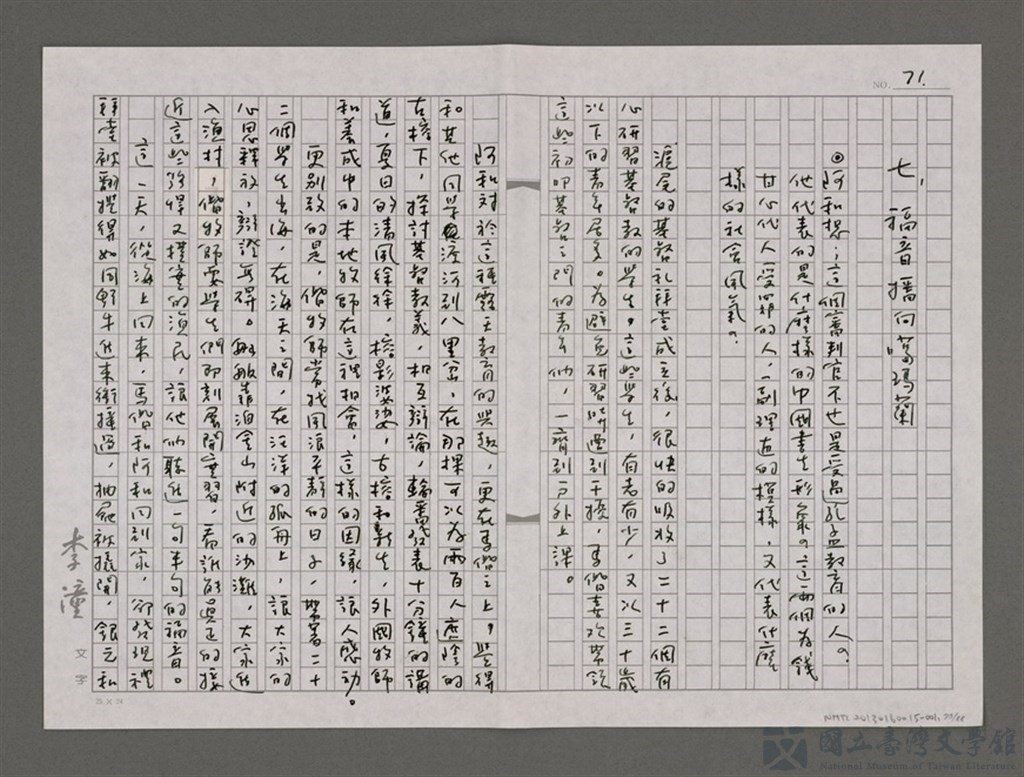 NO. 71.
七、福音播向噶瑪蘭
◎阿和想:這個審判官不也是受過孔孟教育的人。
他代表的是什麼樣的中國書生形象。這兩個為錢
甘心代人受罪的人,一副理直的模樣,又代表什麼
樣的社會風氣。
滬尾的基督禮拜堂成立後,很快的吸收了二十二個有
心研習基督教的學生。這些學生,有老有少,又以三十歲
以下的青年居多。為避免研習時遇到干擾,馬偕喜歡帶領
這些初叩基督之門的青年們,一齊到戶外上課。
阿和對於這種露天教育的興趣,更在馬偕之上。學得
和其他同學渡河到八里岔,在那棵可以為兩百人遮陰的
古榕下,探討基督教義,相互辯論,輪番發表十分鐘的講
道,夏日的清風徐徐,榕影婆娑,古榕和新生,外國牧師
和養成中的本地牧師在這裡相會,這樣的因緣,讓人感動。
更別致的是,偕牧師常找風浪平靜的日子,帶著二十
二個學生出海,在海天之間,在汪洋的孤舟上,讓大家的
心思釋放,辯證無礙。舢舨靠泊金山附近的沙灘,大家進
入漁村,偕牧師要學生們即刻展開實習,看誰能真正的接
近這些強悍又樸實的漁民,讓他們聽進一句半句的福音。
這一天,從海上回來,馬偕和阿和回到家,卻發現禮
拜堂被翻攪得如同野牛進來衝撞過,抽屜被撬開,銀元和
李潼
文字
25×24
NMTL20130160015-001,77/88
國立臺灣文學館
National Museum of Taiwan Literature